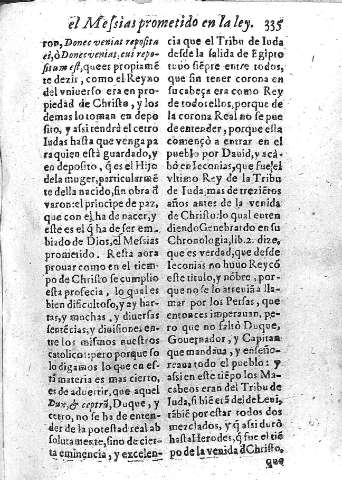 el Messias prometido en la ley. 335
ron, Donec venias reposita
ei, ò Donec venias, cui repo-
situm est, que es propiamē
te dezir, como el Reyno
del vniuerso era en pro-
piedad de Christo, y los
demas lo toman en depo
sito, y assi tendrà el cetro
Iudas hasta que venga pa
ra quien està guardado, y
en deposito, q̄ es el Hijo
de la muger, particularmē
te della nacido, sin obra d̄
varon: el principe de paz,
que con el ha de nacer, y
este es el q̄ ha de ser em-
biado de Dios, el Messias
prometido. Resta aora
prouar como en el tiem-
po de Christo se cumplio
esta profecia, lo qual es
bien dificultoso, y ay har-
tas, y muchas, y diuersas
sentēcias, y diuisiones en-
tre los mismos nuestros
catolicos: pero porque so
lo digamos lo que en es-
ta materia es mas cierto,
es de aduertir, que aquel
Dux, & ceptrū, Duque, y
cetro, no se ha de enten-
der de la potestad real ab
solutamente, sino de cier-
ta eminencia, y excelen-
cia que el Tribu de Iuda
desde la salida de Egipto
tuuo siēpre entre todos,
que sin tener corona en
su cabeça era como Rey
de todos ellos, porque de
la corona Real no se pue
de entender, porque esta
començò a entrar en el
pueblo por Dauid, y aca-
bó en Ieconias, que fue el
vltimo Rey de la Tribu
de Iuda, mas de treziētos
años antes de la venida
de Christo: lo qual enten
diendo Genebrardo en su
Chronologia, lib. 2. dize,
que es verdad, que desde
Ieconias no huuo Rey cō
este titulo, y nōbre, por-
que no se lo atreuiā a lla-
mar por los Persas, que
entonces imperauan, pe-
ro que no faltò Duque,
Gouernador, y Capitan
que mandaua, y enseño-
reaua todo el pueblo: y
assi en este tiēpo los Ma-
cabeos eran del Tribu de
Iuda, si biē erā del de Leui,
tābiē por estar todos dos
mezclados, y q̄ assi durò
hasta Herodes, q̄ fue el tiē
po de la venida d̄ Christo,
que